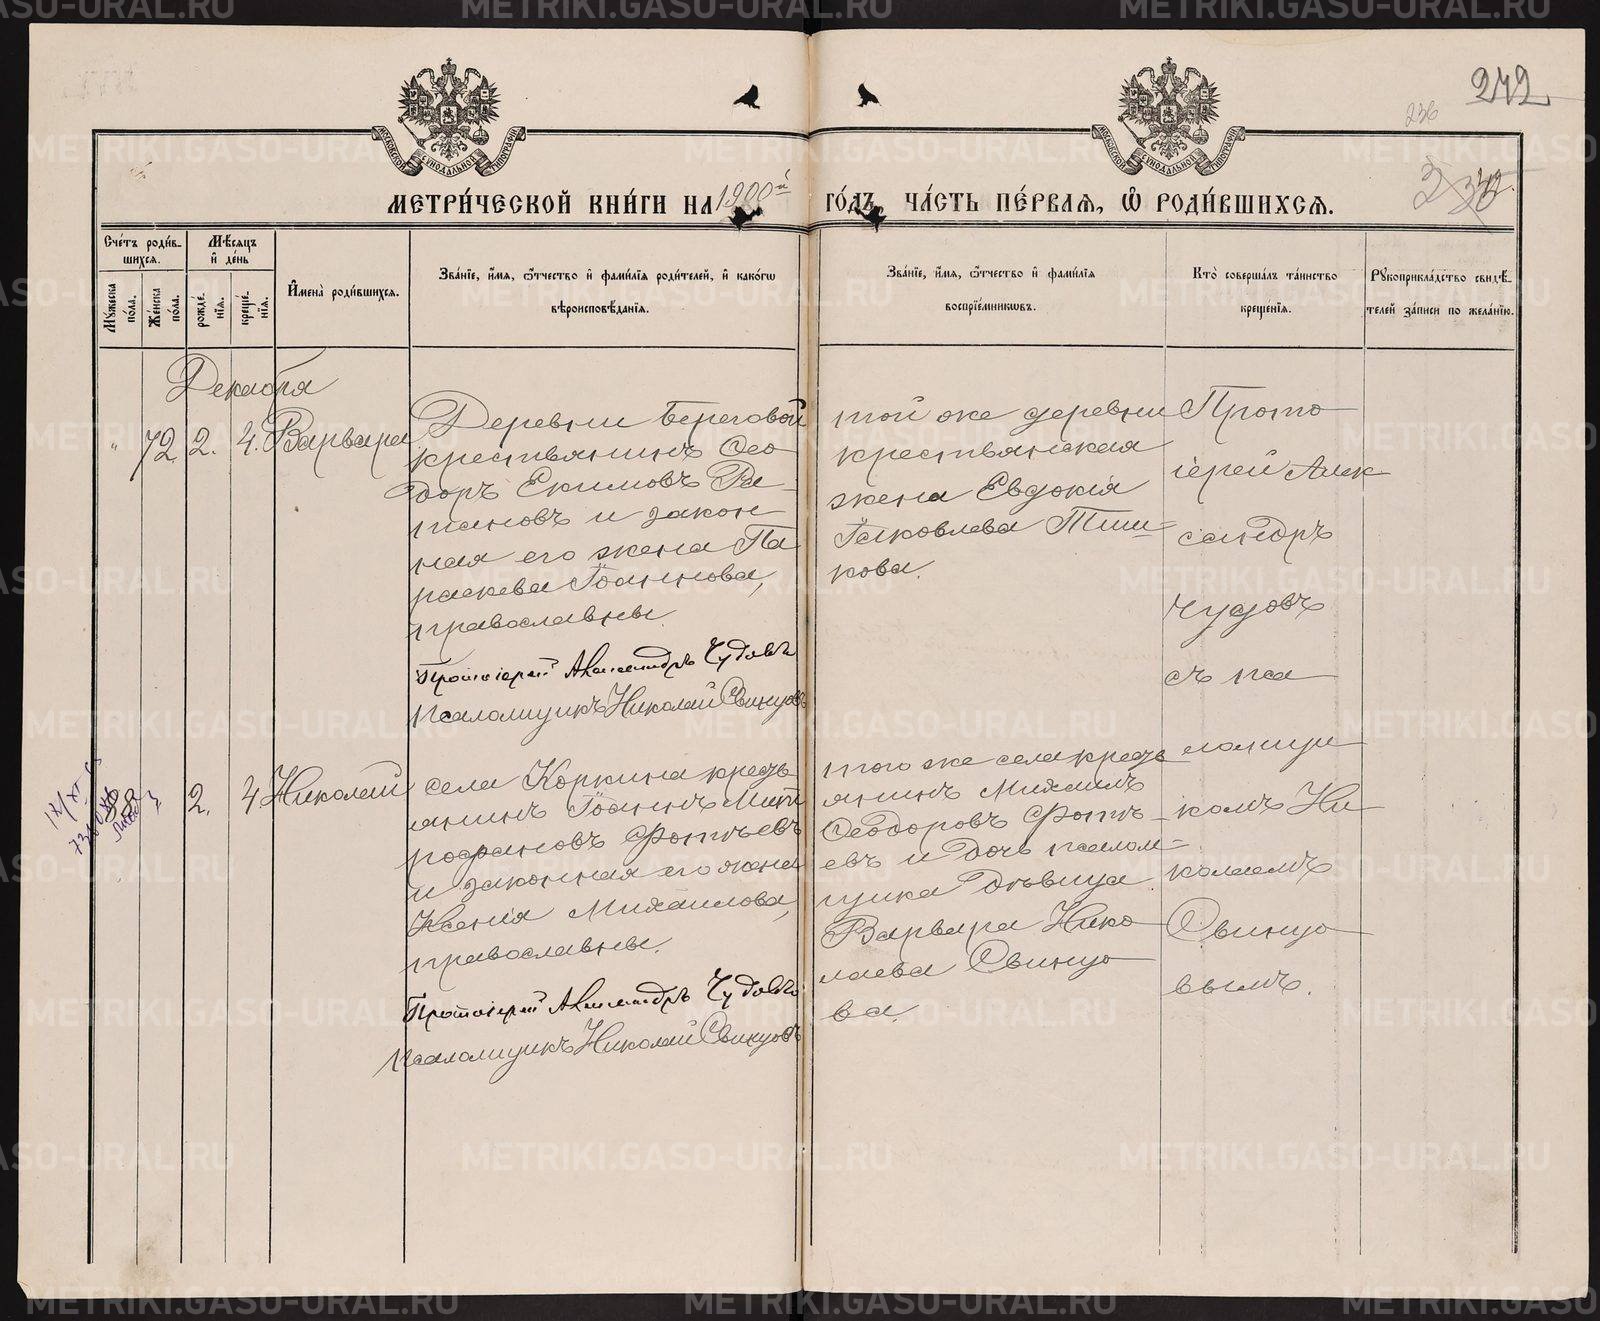 242
236
МОСКОВСКОЙ СѴНОДАЛЬНОЙ ТИПОГРАФІИ
МОСКОВСКОЙ СѴНОДАЛЬНОЙ ТИПОГРАФІИ
МЕТРИ́ЧЕСКОЙ КНИ́ГИ НА 1900й ГО́ДЪ, ЧА́СТЬ ПЕ́РВАѦ, Ѡ РОДИ́ВШИХСѦ.
Сче́тъ роди́вшихсѧ.
Мꙋжеска по́ла.
Же́нска по́ла.
Мѣ́сѧцъ и҆ де́нь
рожде́нїѧ.
креще́нїѧ.
И҆мена̀ роди́вшихсѧ.
Зва́нїе, и҆́мѧ, ѻ҆́тчество и҆ фами́лїѧ роди́телей, и҆ како́гѡ
вѣроисповѣ́данїѧ.
Зва́нїе, и҆́мѧ, ѻ҆́тчество и҆ фами́лїѧ
воспрїе́мникѡвъ.
Кто̀ соверша́лъ та́инство
креще́нїѧ.
Рꙋкоприкла́дство свидѣ́
телей за́писи по жела́нїю.
Декабря
" 72. 2. 4. Варвара
Деревни Береговой
крестьянинъ Ѳео
доръ Екимовъ Ра
мановъ и закон
ная его жена Па
раскева Іоаннова,
православны.
Протоіерей Александръ Чудовъ
Псаломщикъ Николай Свинцовъ
той же деревни
крестьянская
жена Евдокія
Іаковлева Тиш-
кова.
Прото
іерей Алек
сандръ
Чудовъ
съ пса
ломщи
комъ Ни
колаемъ
Свинцо
вымъ.
2. 4. Николай
села Коркина кресть
янинъ Іоаннъ Мит
рофановъ Фотѣевъ
и законная его жена
Ксенія Михаилова,
православны.
Протоіерей Александръ Чудовъ
Псаломщикъ Николай Свинцовъ
того же села кресть
янинъ Михаилъ
Ѳеодоровъ Фотѣ-
евъ и дочь псалом-
щика дѣвица
Варвара Нико
лаева Свинцо
ва.
METRIKI.GASO-URAL.RU